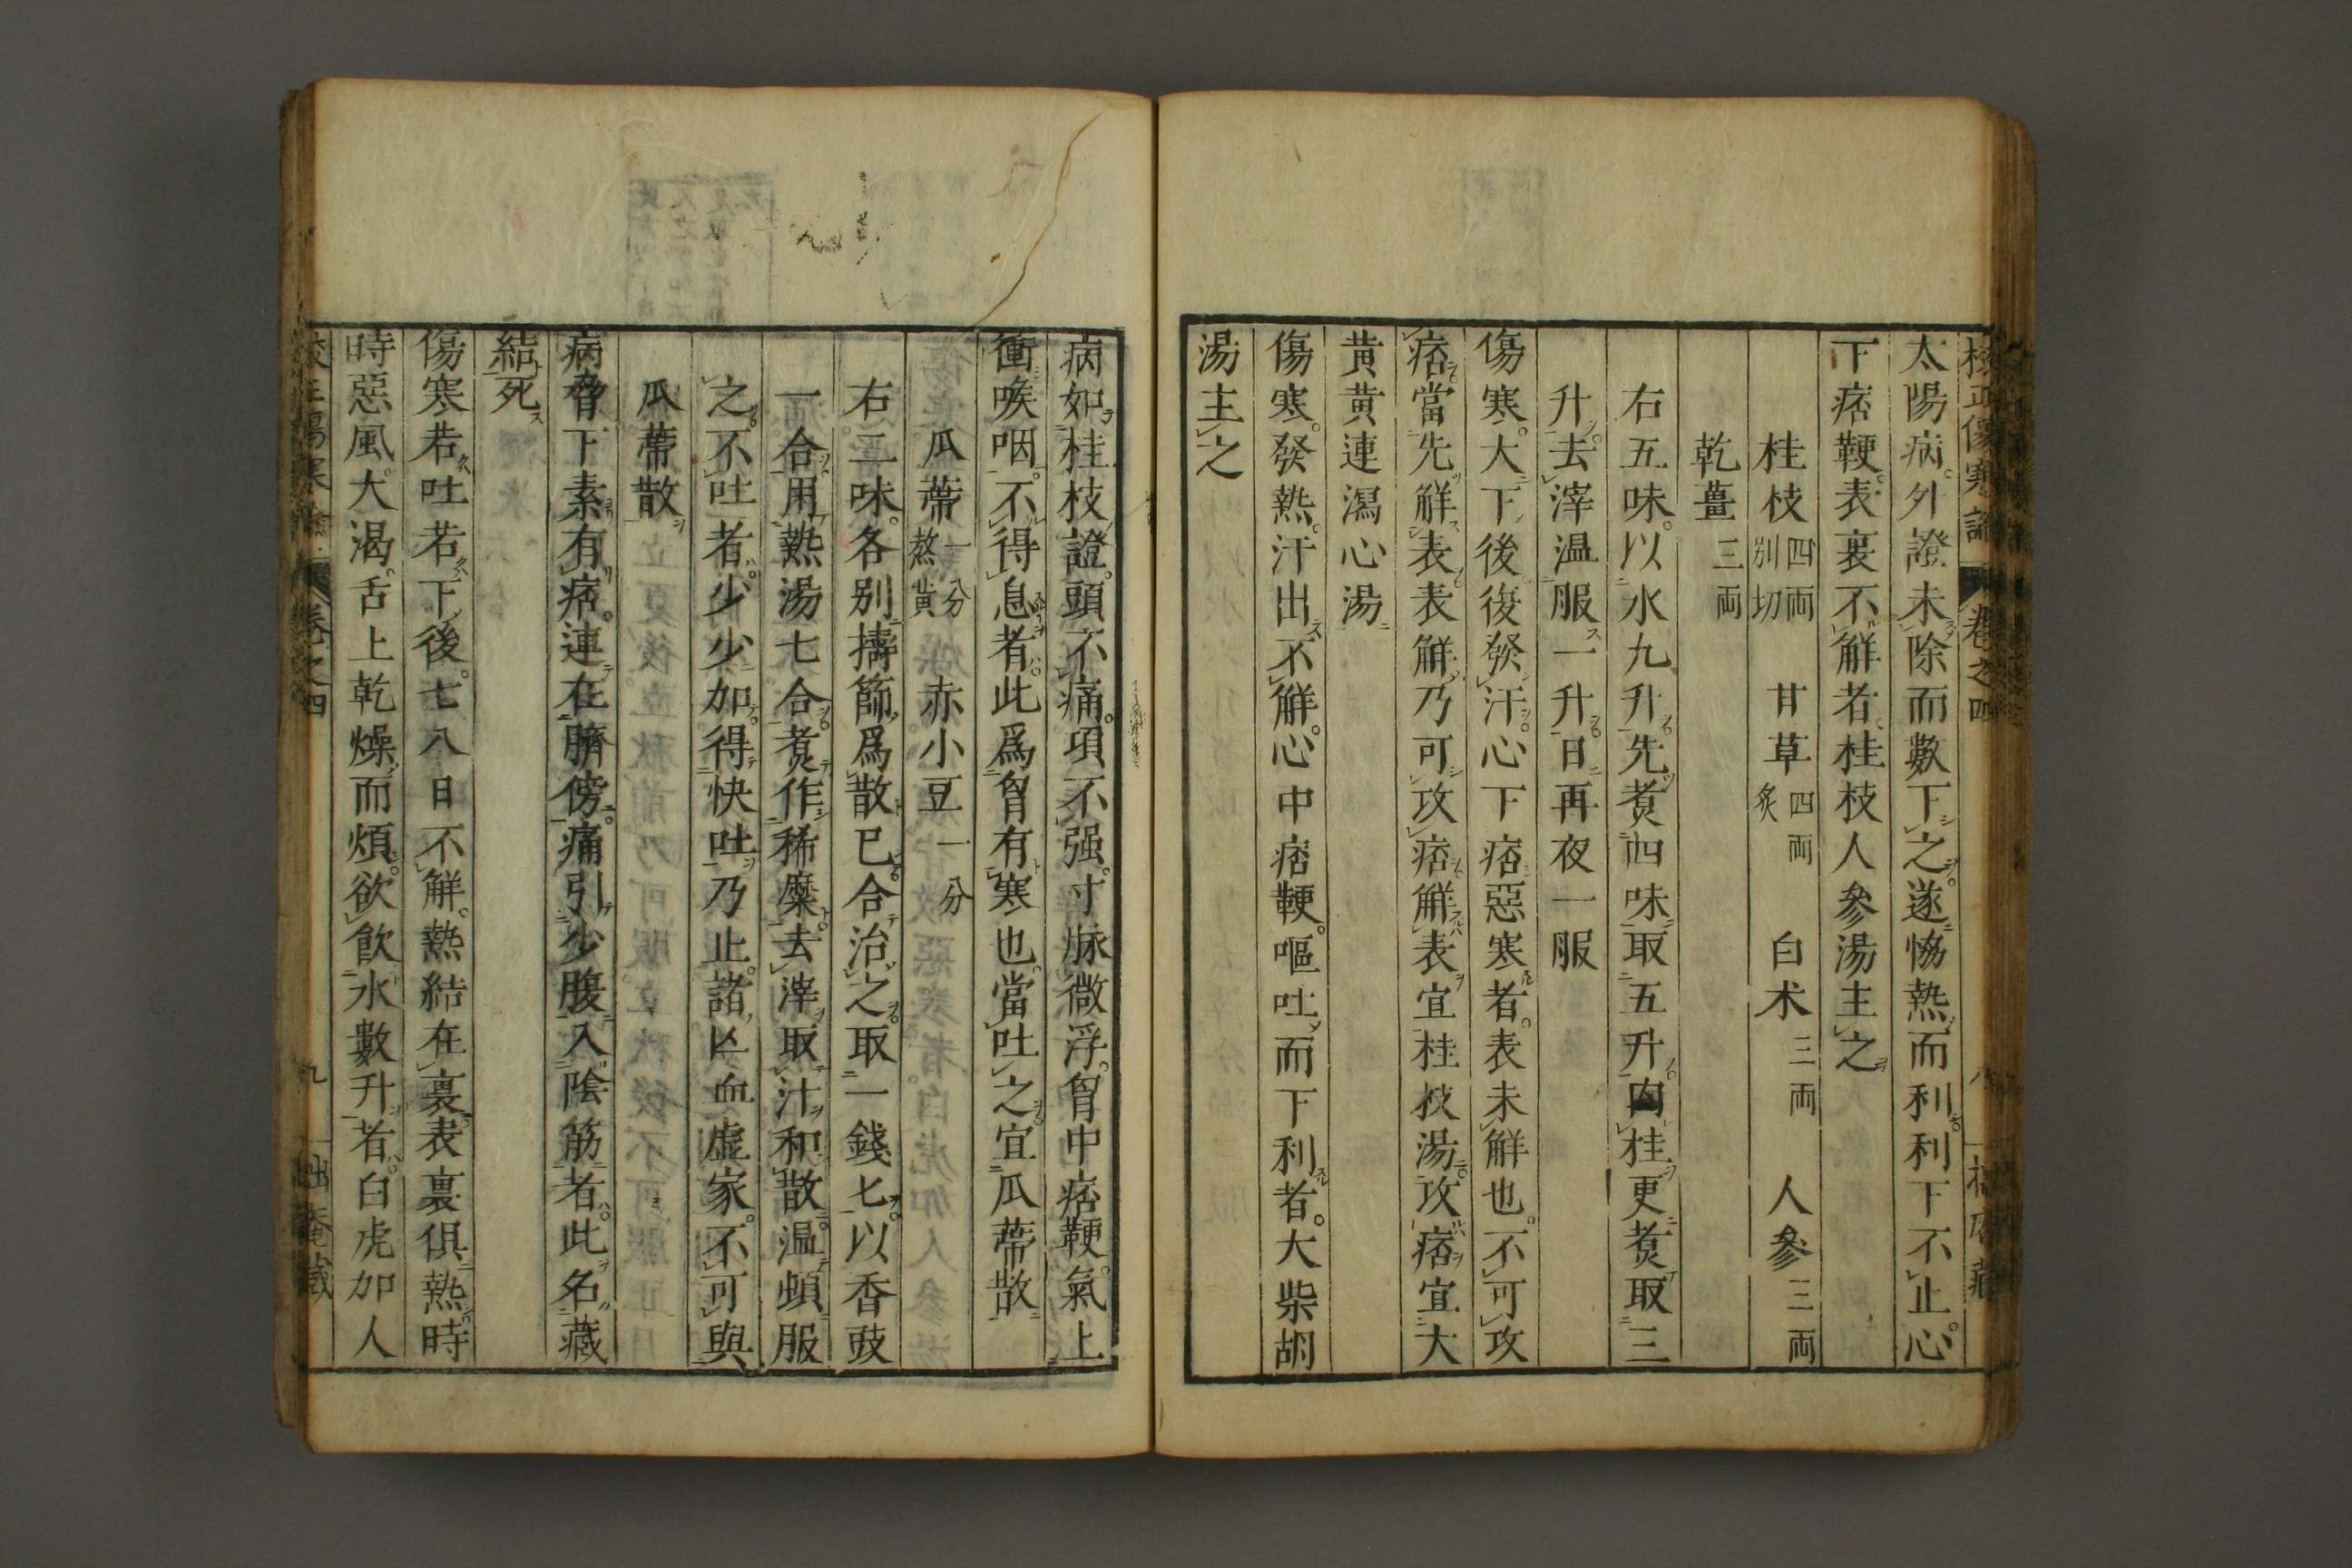 太陽病外證未除而數下之遂恊熱而利利下不止心
下痞鞕表裏不解者桂枝人參湯主之
桂枝四両別切 甘草四両炙 白朮三両 人參三両
乾薑三両
右五味以水九升先煑四味取五升内桂更煑取三
升去滓温服一升日再夜一服
傷寒大下後復發汗心下痞惡寒者表未解也不可攻
痞當先解表表解乃可攻痞解表宜桂枝湯攻痞宜大
黄黄連瀉心湯
傷寒發熱汗出不解心中痞鞕嘔吐而下利者大柴胡
湯主之
病如桂枝證頭不痛項不强寸脉微浮胷中痞鞕氣上
衝喉咽不得息者此爲胷有寒也當吐之宜瓜蒂散
瓜蒂一分熬黄 赤小豆一分
右二味各别擣篩爲散已合治之取一錢匕以香豉
一合用熱湯七合煑作稀糜去滓取汁和散温頓服
之不吐者少少加得快吐乃止諸亡血虛家不可與
瓜蒂散
病脅下素有痞連在臍傍痛引少腹入陰筋者此名藏
結死
傷寒若吐若下後七八日不解熱結在裏表裏俱熱時
時惡風大渴舌上乾燥而煩欲飲水數升者白虎加人